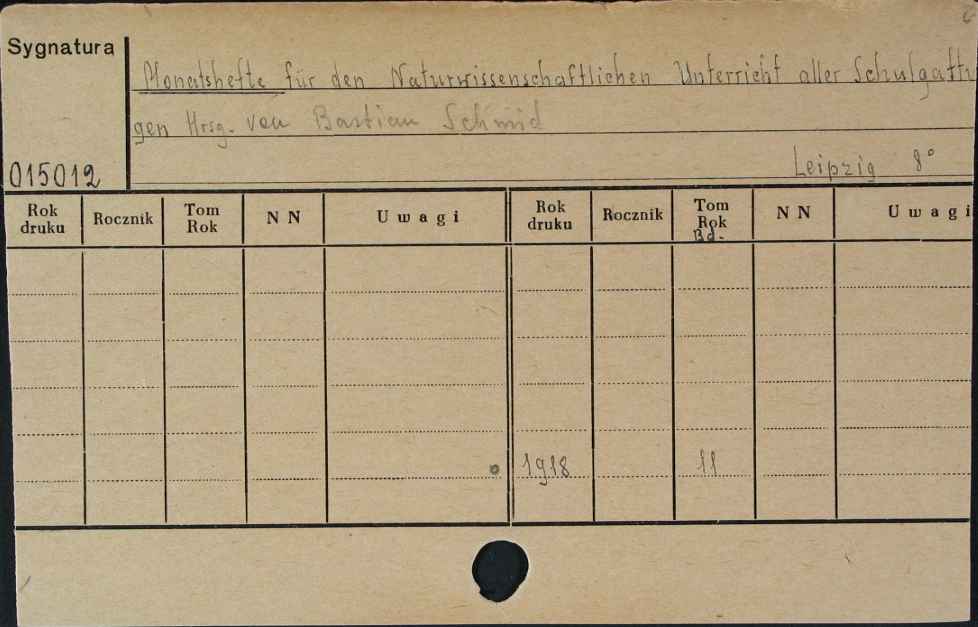 Sygnatura
Monatshefte für den Naturwissenschaftlichen Unterricht aller Schulgattu
gen Hrsg. von Bastian Schmid
Leipzig 8°
015012
Rok druku Rocznik Tom Rok NN Uwagi Rok druku Rocznik Tom Rok Bd. NN Uwagi
1918 11